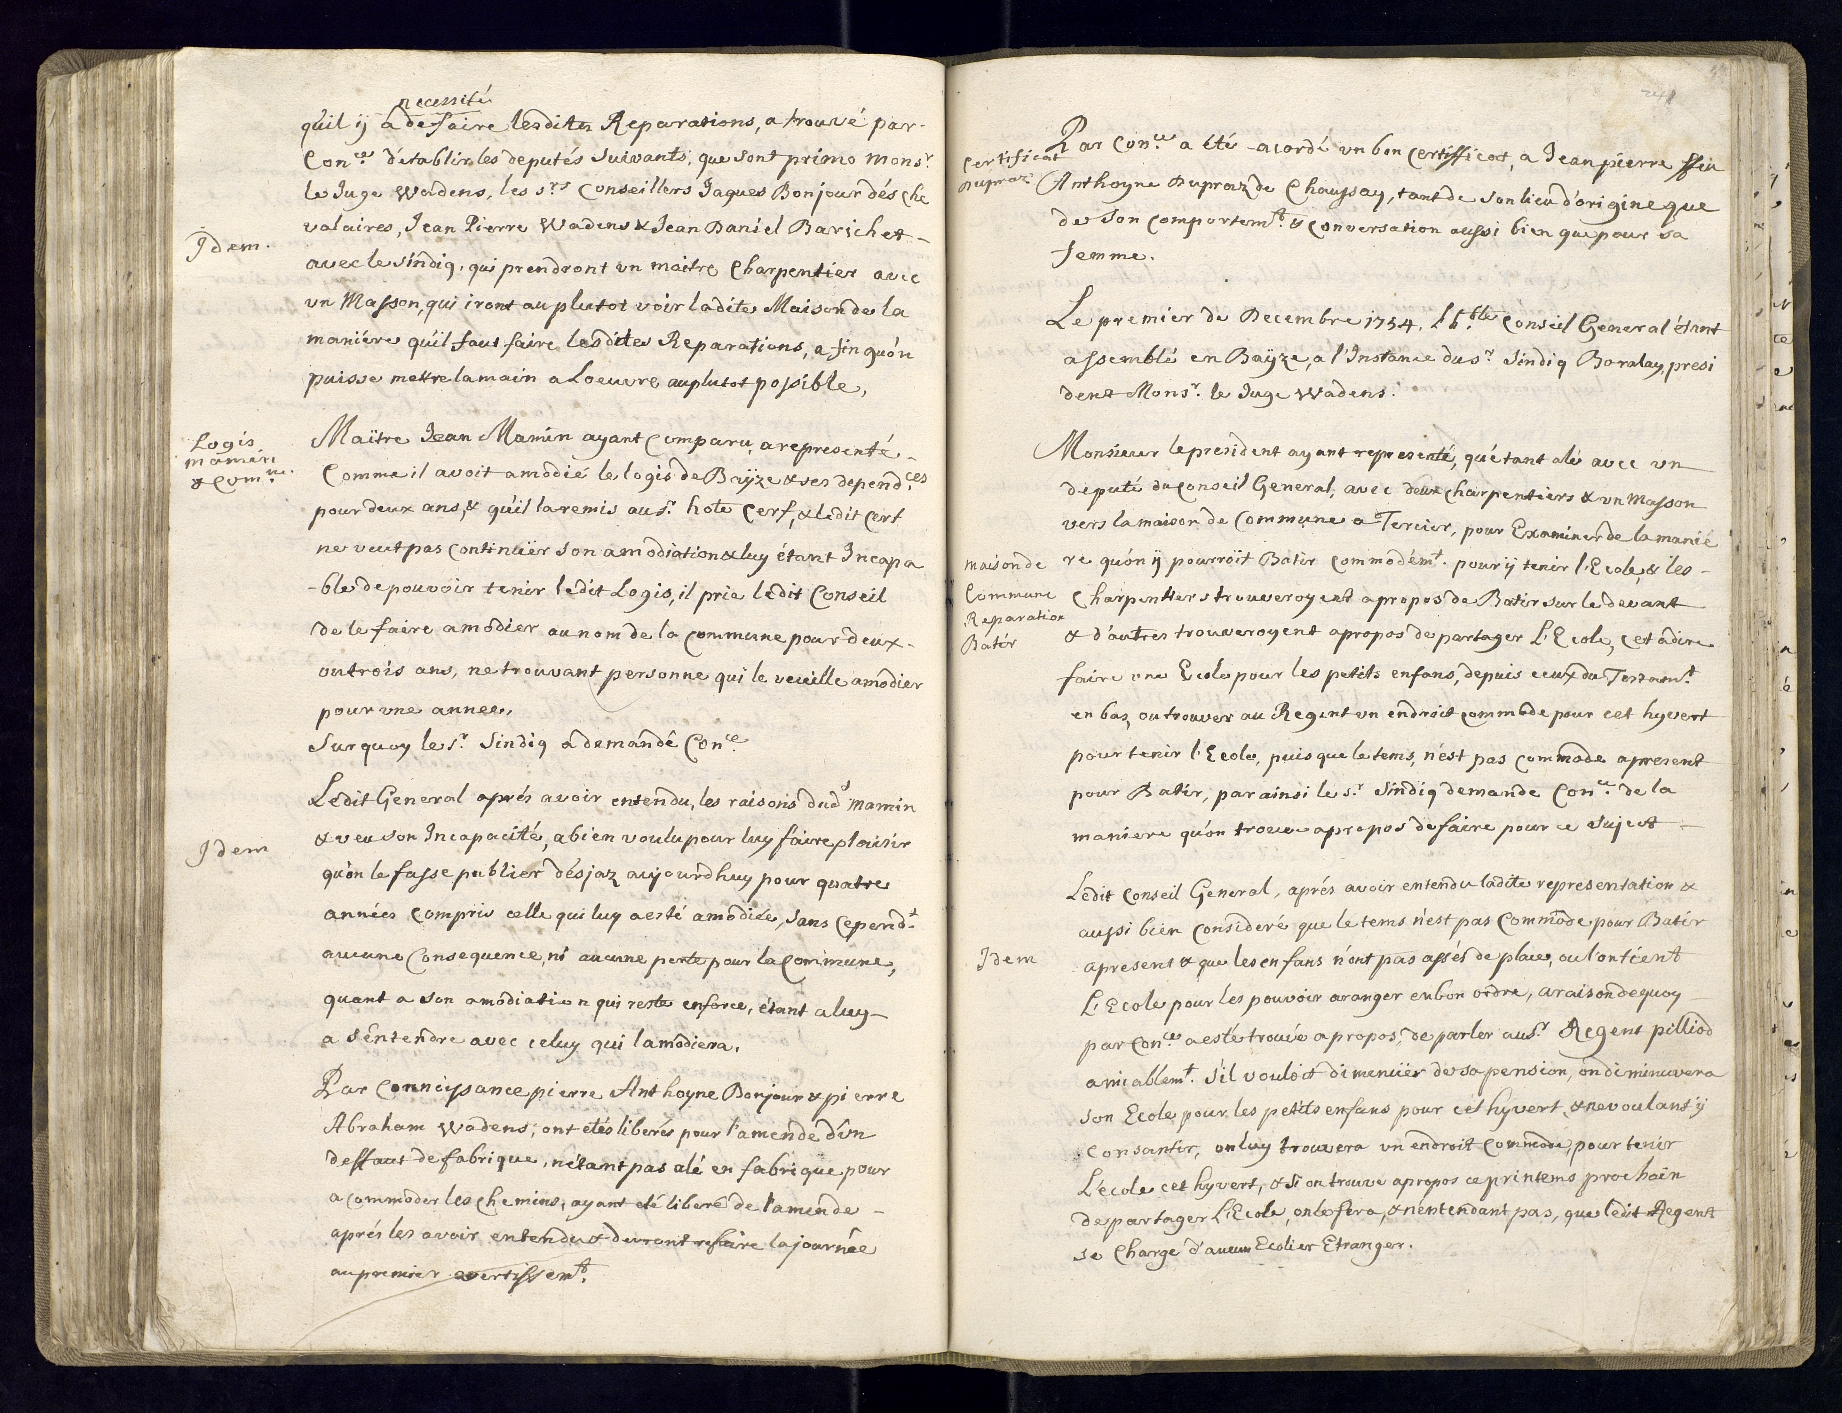 necessité
qu'il ÿ a de faire lesdites Reparations, a trouvé par-
Con.ce d'établir les deputés suivants, que sont primo Mons.r
le Juge Wadens, les s.rs Conseillers Jaques Bonjour dés Che
valaires, Jean Pierre Wadens & Jean Daniel Barichet -
Idem.
avec le sindiq, qui prendront un maitre Charpentier avec
un Masson, qui iront au plutot voir ladite Maison de la
maniére qu'il faut faire lesdites Reparations, a fin qu'on
puisse mettre la main a Loeuvre au plutot possible,
Logis
mamin
& Com.ne
Maïtre Jean Mamin ayant Comparu, a representé -
Comme il avoit amodié le logis de Baÿze & ses depend.ces
pour deux ans, & qu'il la remis au s.r hote Cerf, & ledit Cerf
ne veut pas Continuër son amodiation & luy étant Incapa
-ble de pouvoir tenir ledit Logis, il prie ledit Conseil
de le faire amodier au nom de la Commune pour deux -
ou trois ans, ne trouvant personne qui le veuille amodier
pour une année.
Surquoy le s.r Sindiq a demandé Con.ce
Ledit General aprés avoir entendu, les raisons dud.t mamin
& veu son Incapacité, a bien voulu pour luy faire plaisir
Idem
qu'on le fasse publier désjaz aujourdhuy pour quatre
années compris celle qui luy a esté amodiée, sans Cepend.t
aucune Consequence, ni aucune perte pour la Commune,
quant a son amodiation qui reste enforce, étant a luy -
a s'entendre avec celuy qui lamodiera.
Par Connoissance pierre Anthoyne Bonjour & pierre
Abraham Wadens, ont etés liberés pour l'amende d'un
deffaut de fabrique, n'étant pas alé en fabrique pour
acommoder les Chemins, ayant eté liberé de l'amende -
aprés les avoir entendu & devront refaire la journée
au premier avertissem.t
Certificat
Dupraz
Par Con.ce a été acordé un bon certifficat, a Jean pierre ffeu
Anthoyne Dupraz de Chaussay, tant de son lieu d'origine que
de son comportem.t & conversation aussi bien que pour sa
femme.
Le premier de Decembre 1754. L'h.ble Conseil General étant
assemblé en Baÿze, a l'Instance du s.r Sindiq Boralay, presi
dent Mons.r le Juge Wadens.
Monsieur le president ayant representé, qu'étant alé avec un
deputé du Conseil General, avec deux charpentiers & un Masson
vers la maison de Commune a Tercier, pour Examiner de la manié
maison de
Commune
Reparation
Batir
re qu'on ÿ pourroit Batir Commodém.t pour ÿ tenir l'Ecole, & les -
Charpentiers trouveroyent apropos de Batir sur le devant
& d'autres trouveroyent apropos de partager L'Ecole, c'et adire
faire une Ecole pour les petits enfans, depuis ceux du Testam.t
en bas, ou trouver au Regent un endroit commode pour cet hyvert
pour tenir l'Ecole, puis que le tems, n'est pas commode apresent
pour Batir, par ainsi le s.r Sindiq demande Con.ce de la
maniere qu'on trouve apropos de faire pour ce sujet -
Ledit Conseil General, aprés avoir entendu ladite representation &
aussi bien consideré que le tems n'est pas Commode pour Batir
Idem
apresent & que les enfans n'ont pas assés de place, ou l'on tient
L'Ecole pour les pouvoir aranger en bon ordre, a raison de quoy
par Con.ce a esté trouvé apropos, de parler au s.r Regent pilliod
amiablem.t s'il vouloit dimenuër de sa pension, on diminuera
son Ecole pour les petits enfans pour cet hyvert, & ne voulant ÿ
consantir, on luy trouvera un endroit commode, pour tenir
L'école cet hyvert, & si on trouve apropos ce printems prochain
de partager L'Ecole, on le fera, & n'entendant pas, que ledit Regent
se Charge d'aucun Ecolier Etranger.